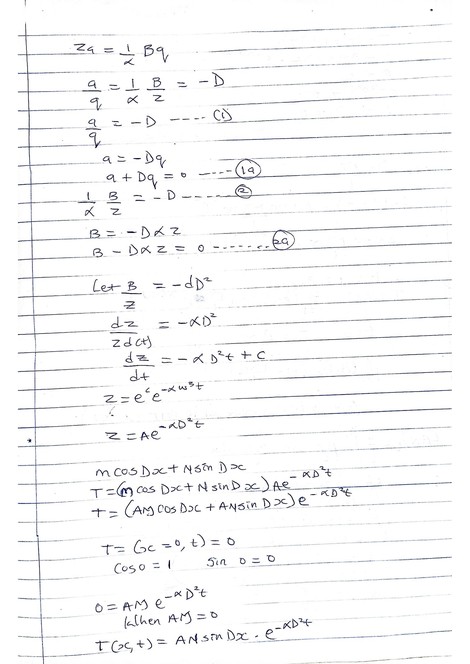 Za = 1/α Bq
a/q = 1/α B/Z = -D
a/q = -D ---- (1)
a = -Dq
a + Dq = 0 ---- (1a)
1/α B/Z = -D ---- (2)
B = -DαZ
B - DαZ = 0 ---- (2a)
Let B/Z = -dD²
dz/Zd(t) = -αD²
dz/dt = -αD²t + C
Z = e^c e^-αw³t
Z = Ae^-αD²t
mcosDx + NsinDx
T = (mcosDx + NsinDx)Ae^-αD²t
T = (AMcosDx + ANsinDx)e^-αD²t
T = (x = 0, t) = 0
Cos0 = 1 Sin 0 = 0
0 = AM e^-αD²t
When AM = 0
T(x,t) = ANsinDx . e^-αD²t